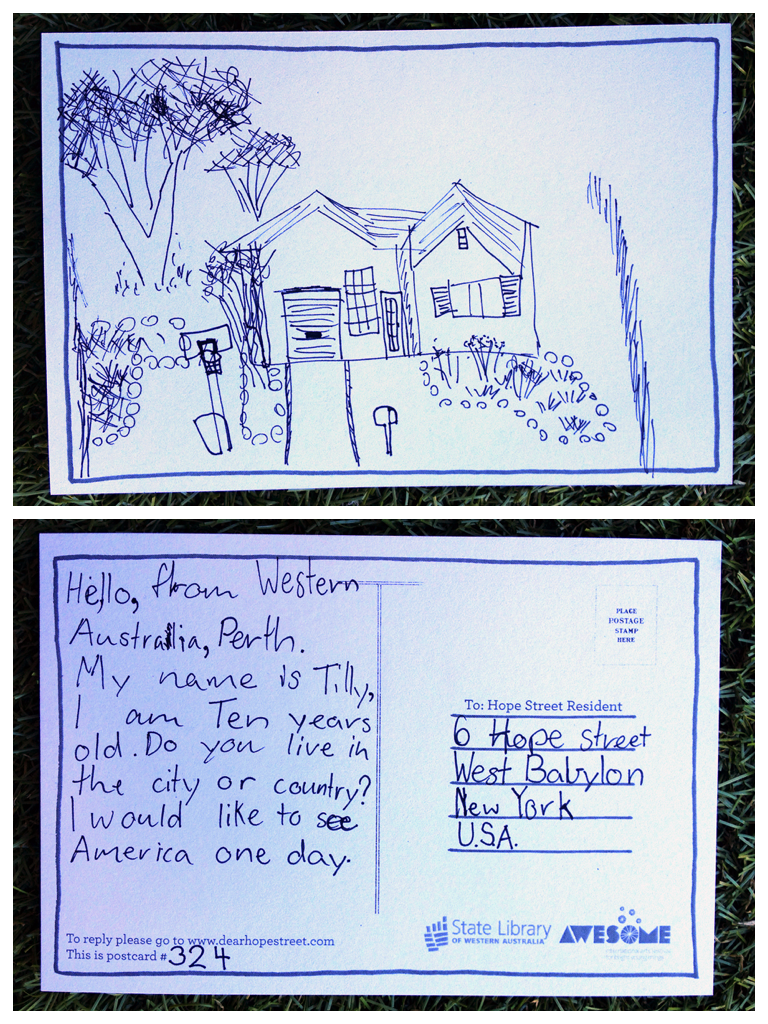 Hello, from Western
Australia, Perth.
My name is Tilly,
I am Ten years
old. Do you live in
the city or country?
I would like to see
America one day.
To reply please go to www.dearhopestreet.com
This is postcard #324
PLACE
POSTAGE
STAMP
HERE
To: Hope Street Resident
6 Hope street
West Babylon
New York
U.S.A.
State Library
OF WESTERN AUSTRALIA
AWESOME